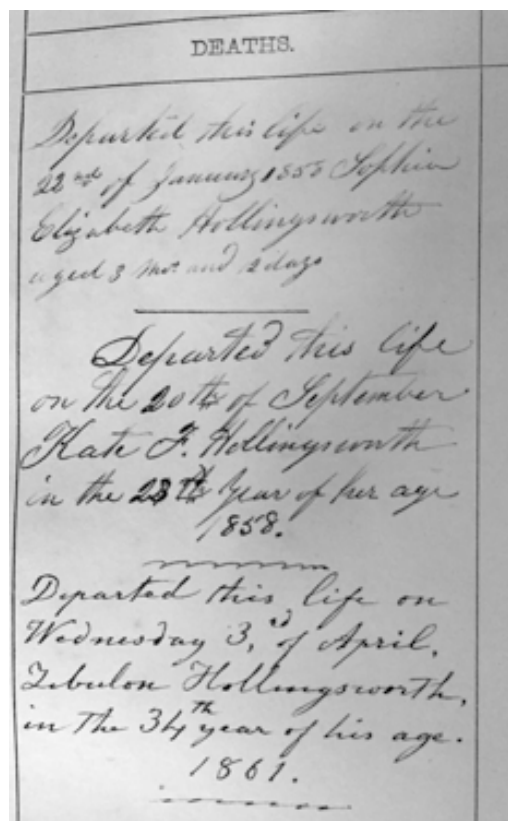 DEATHS.
Departed this life on the
22nd of January 1858 Sophia
Elizabeth Hollingsworth
aged 3 mos. and 2 days
Departed this life
on the 20th of September
Kate F. Hollingsworth
in the year of her age
1858.
Departed this life on
Wednesday 3,rd of April,
Zebulon Hollingsworth,
in the 34th year of his age.
1861.